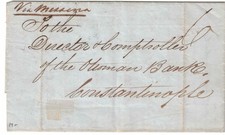 Via Messagen
To the
Director & Comptroller
of the Ottoman Bank
Constantinople